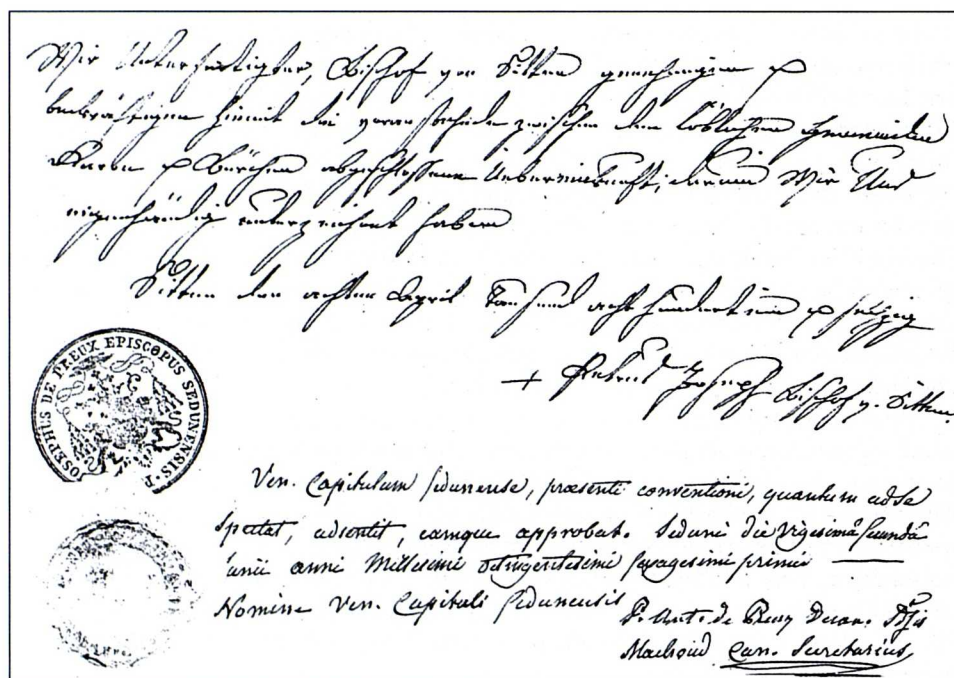 Wir Unterfertigter, Bischof von Sitten genehmigen &
bekräftigen hiemit die voranstehende zwischen den löblichen Gemeinden
Raron & Bürchen abgeschlossene Uebereinkunft, darum Wir Uns
eigenhändig unterzeichnet haben
Sitten den achten April tausend acht hundert ein & sechzig
+ Petrus Joseph Bischof v. Sitten.
JOSEPHUS DE PREUX EPISCOPUS SEDUNENSIS. P.
Ven. Capitulum sedunense, praesenti conventioni, quantum ad se
spectat, adsentit, eamque approbat. Seduni die vigesimâ secundâ
anni Millesimi octingentesimi sexagesimi primi
Nomine Ven. Capituli Sedunensis
P. Ant. de Preux Decan.
Machoud Can. Secretarius